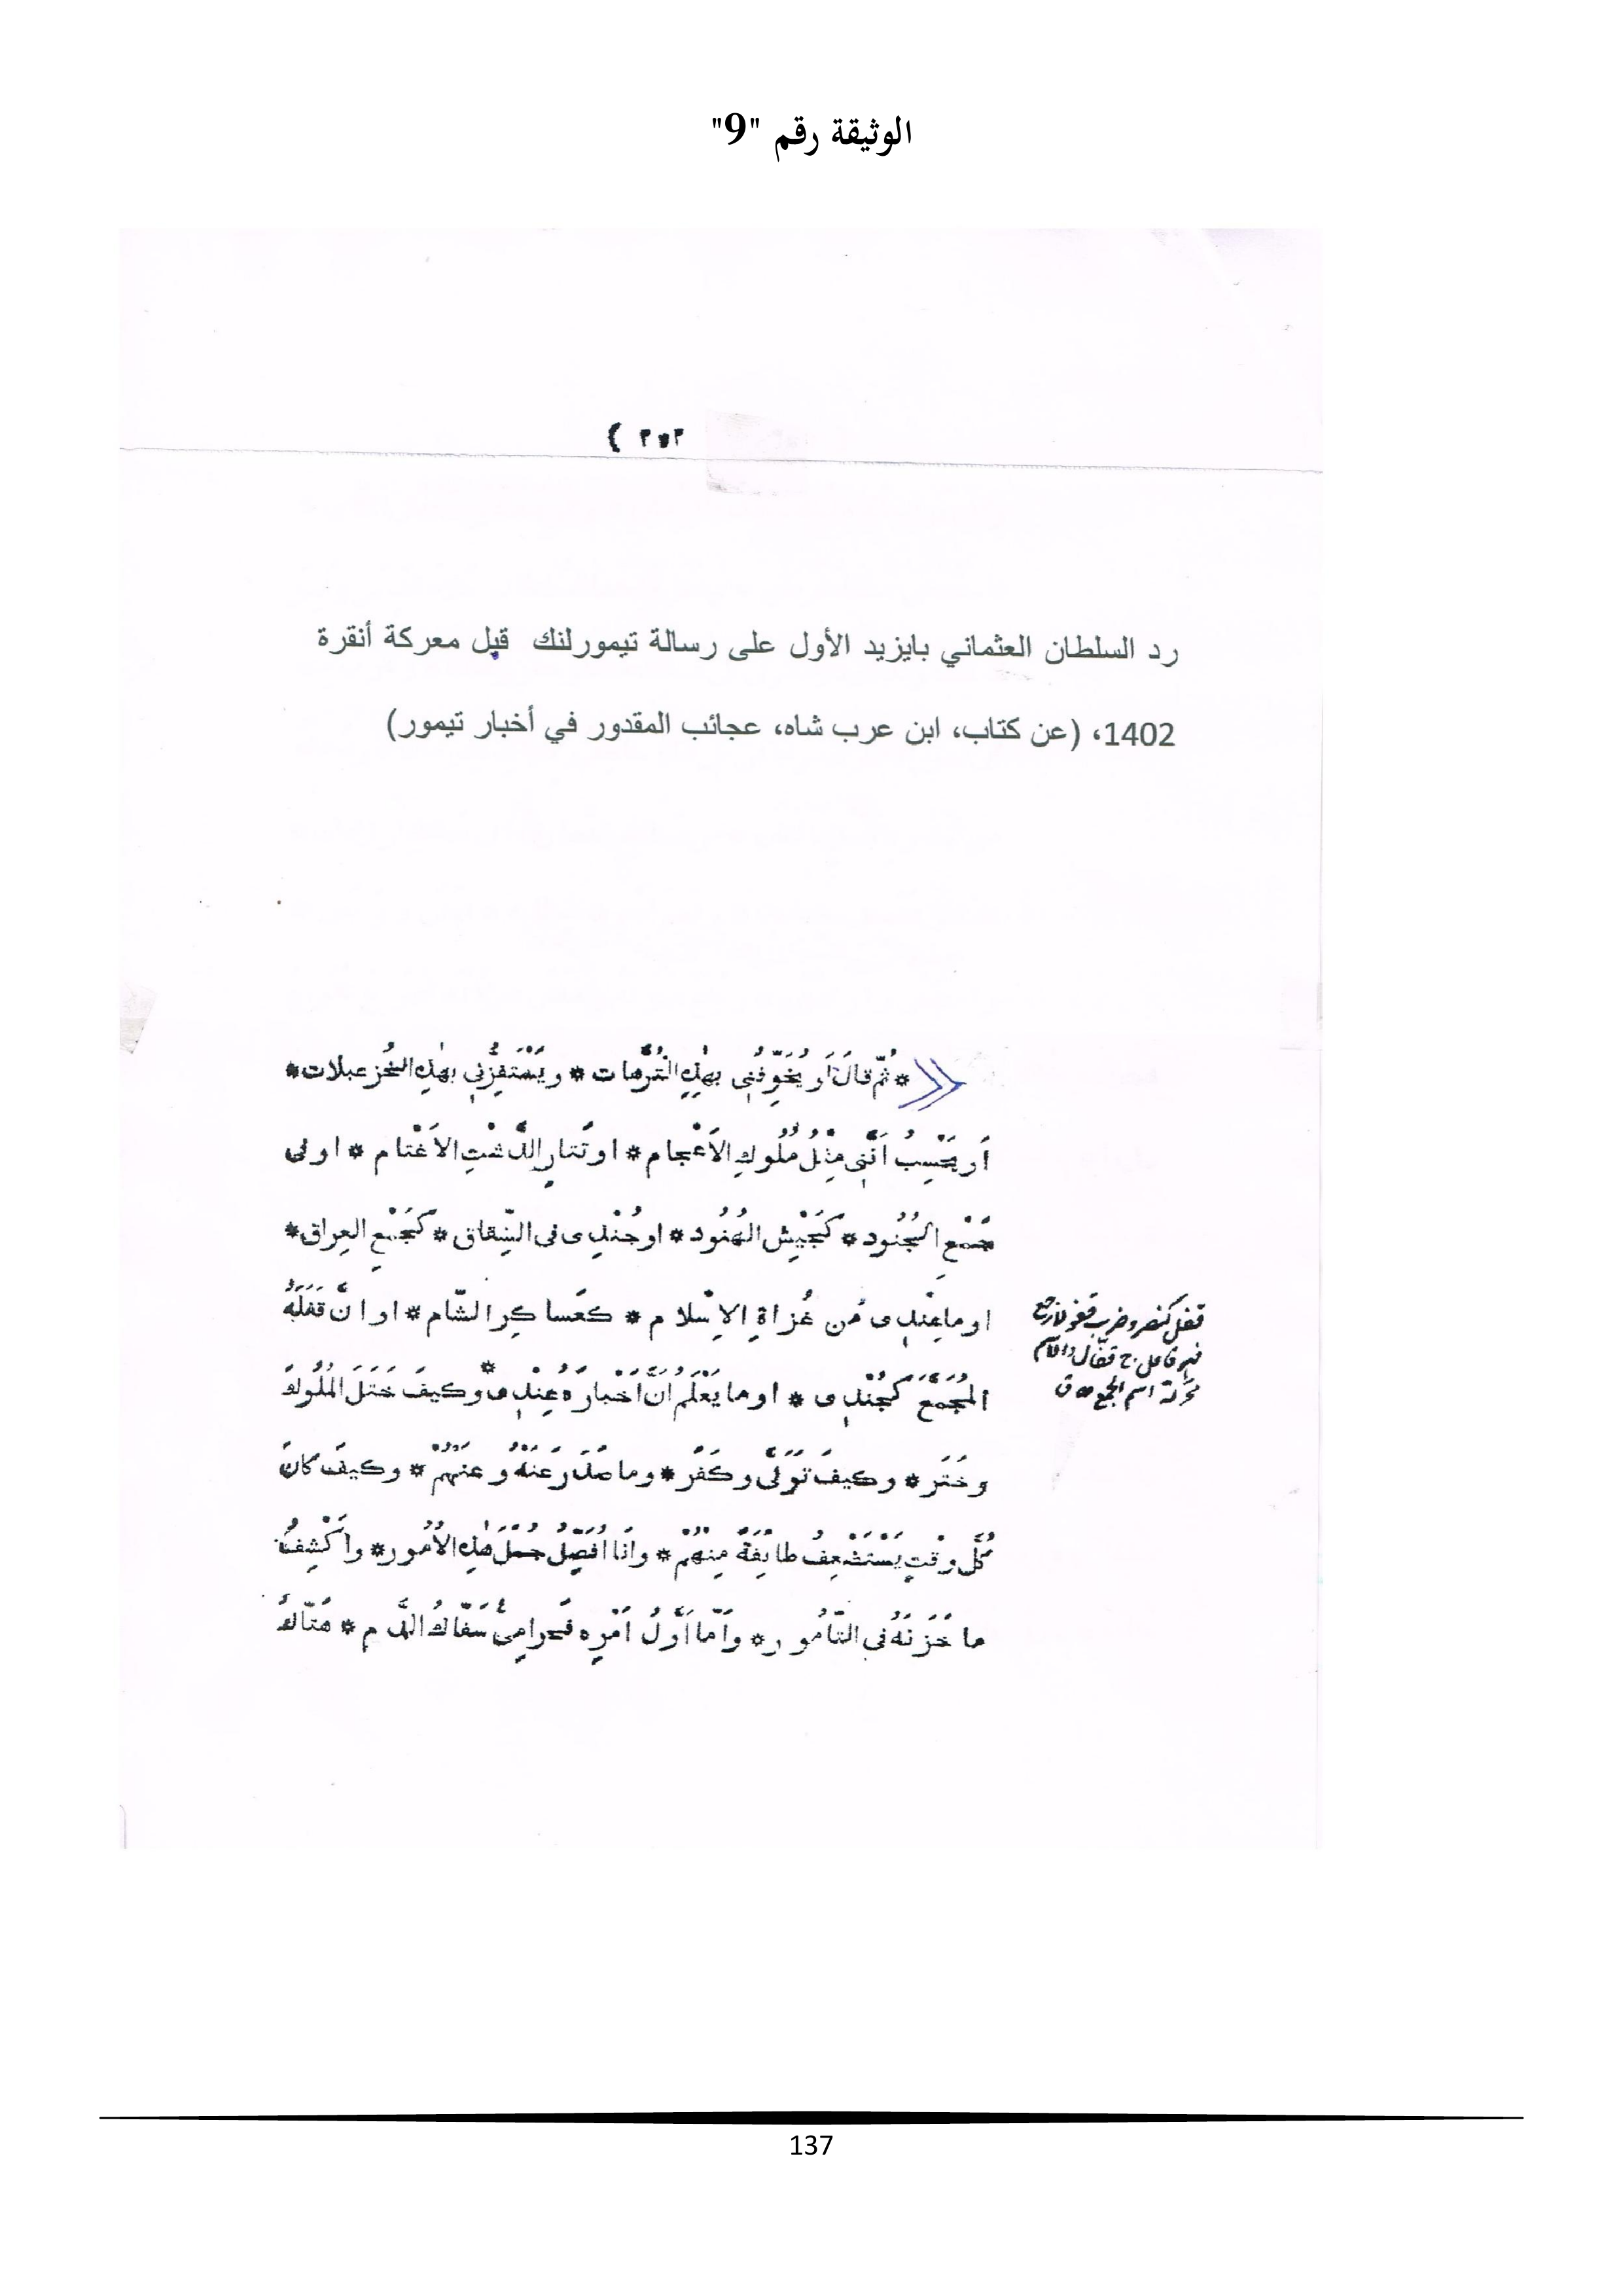 الوثيقة رقم "9"
رد السلطان العثماني بايزيد الأول على رسالة تيمورلنك قبل معركة أنقرة
1402، (عن كتاب، ابن عرب شاه، عجائب المقدور في أخبار تيمور)
* ثُمَّ قالَ اَو يُخَوِّفُنِي بهٰذِهِ التُّرَّهات * ويَسْتَفِزُّنِي بهٰذِهِ الخُزعبلات *
اَو يَحْسِبُ اَنَّنِي مِثْلُ مُلُوكِ الاَعْجام * او تَتارِ الدَّشْتِ الاَغْتام * او في
جَمْعِ الجُنُود * كَجَيْشِ الهُنُود * او جُنْدِى فى الشِّقاق * كَجَمْعِ العِراق *
او ما عِنْدِى مَن غُزاةِ الاِسْلام * كعَساكِرِ الشّام * او انَّ قَفَلَهُ
المُجَمَّعَ كَجُنْدِى * او ما يَعْلَمُ اَنَّ اَخْبارَهُ عِنْدِى * وكيفَ خَتَلَ المُلُوكَ
وخَتَر * وكيفَ تَوَلَّى وكَفَر * وما صَدَرَ عَنْهُ وعَنْهُمْ * وكيفَ كانَ
كُلَّ وقْتٍ يَسْتَضْعِفُ طايِفَةً مِنْهُمْ * وانَا اُفَصِّلُ جُمَلَ هٰذِهِ الاُمُور * واَكْشِفُ
ما خَزَنَهُ فى التّامُور * واَمّا اَوَّلُ اَمْرِهِ فحَرامِىٌّ سَفّاكُ الدَّم * هَتّاكُ
قفل كنصر وضرب قفولا رجع
فهو قافل ج قفّال والاسم
محركة اسم الجمع ق
137